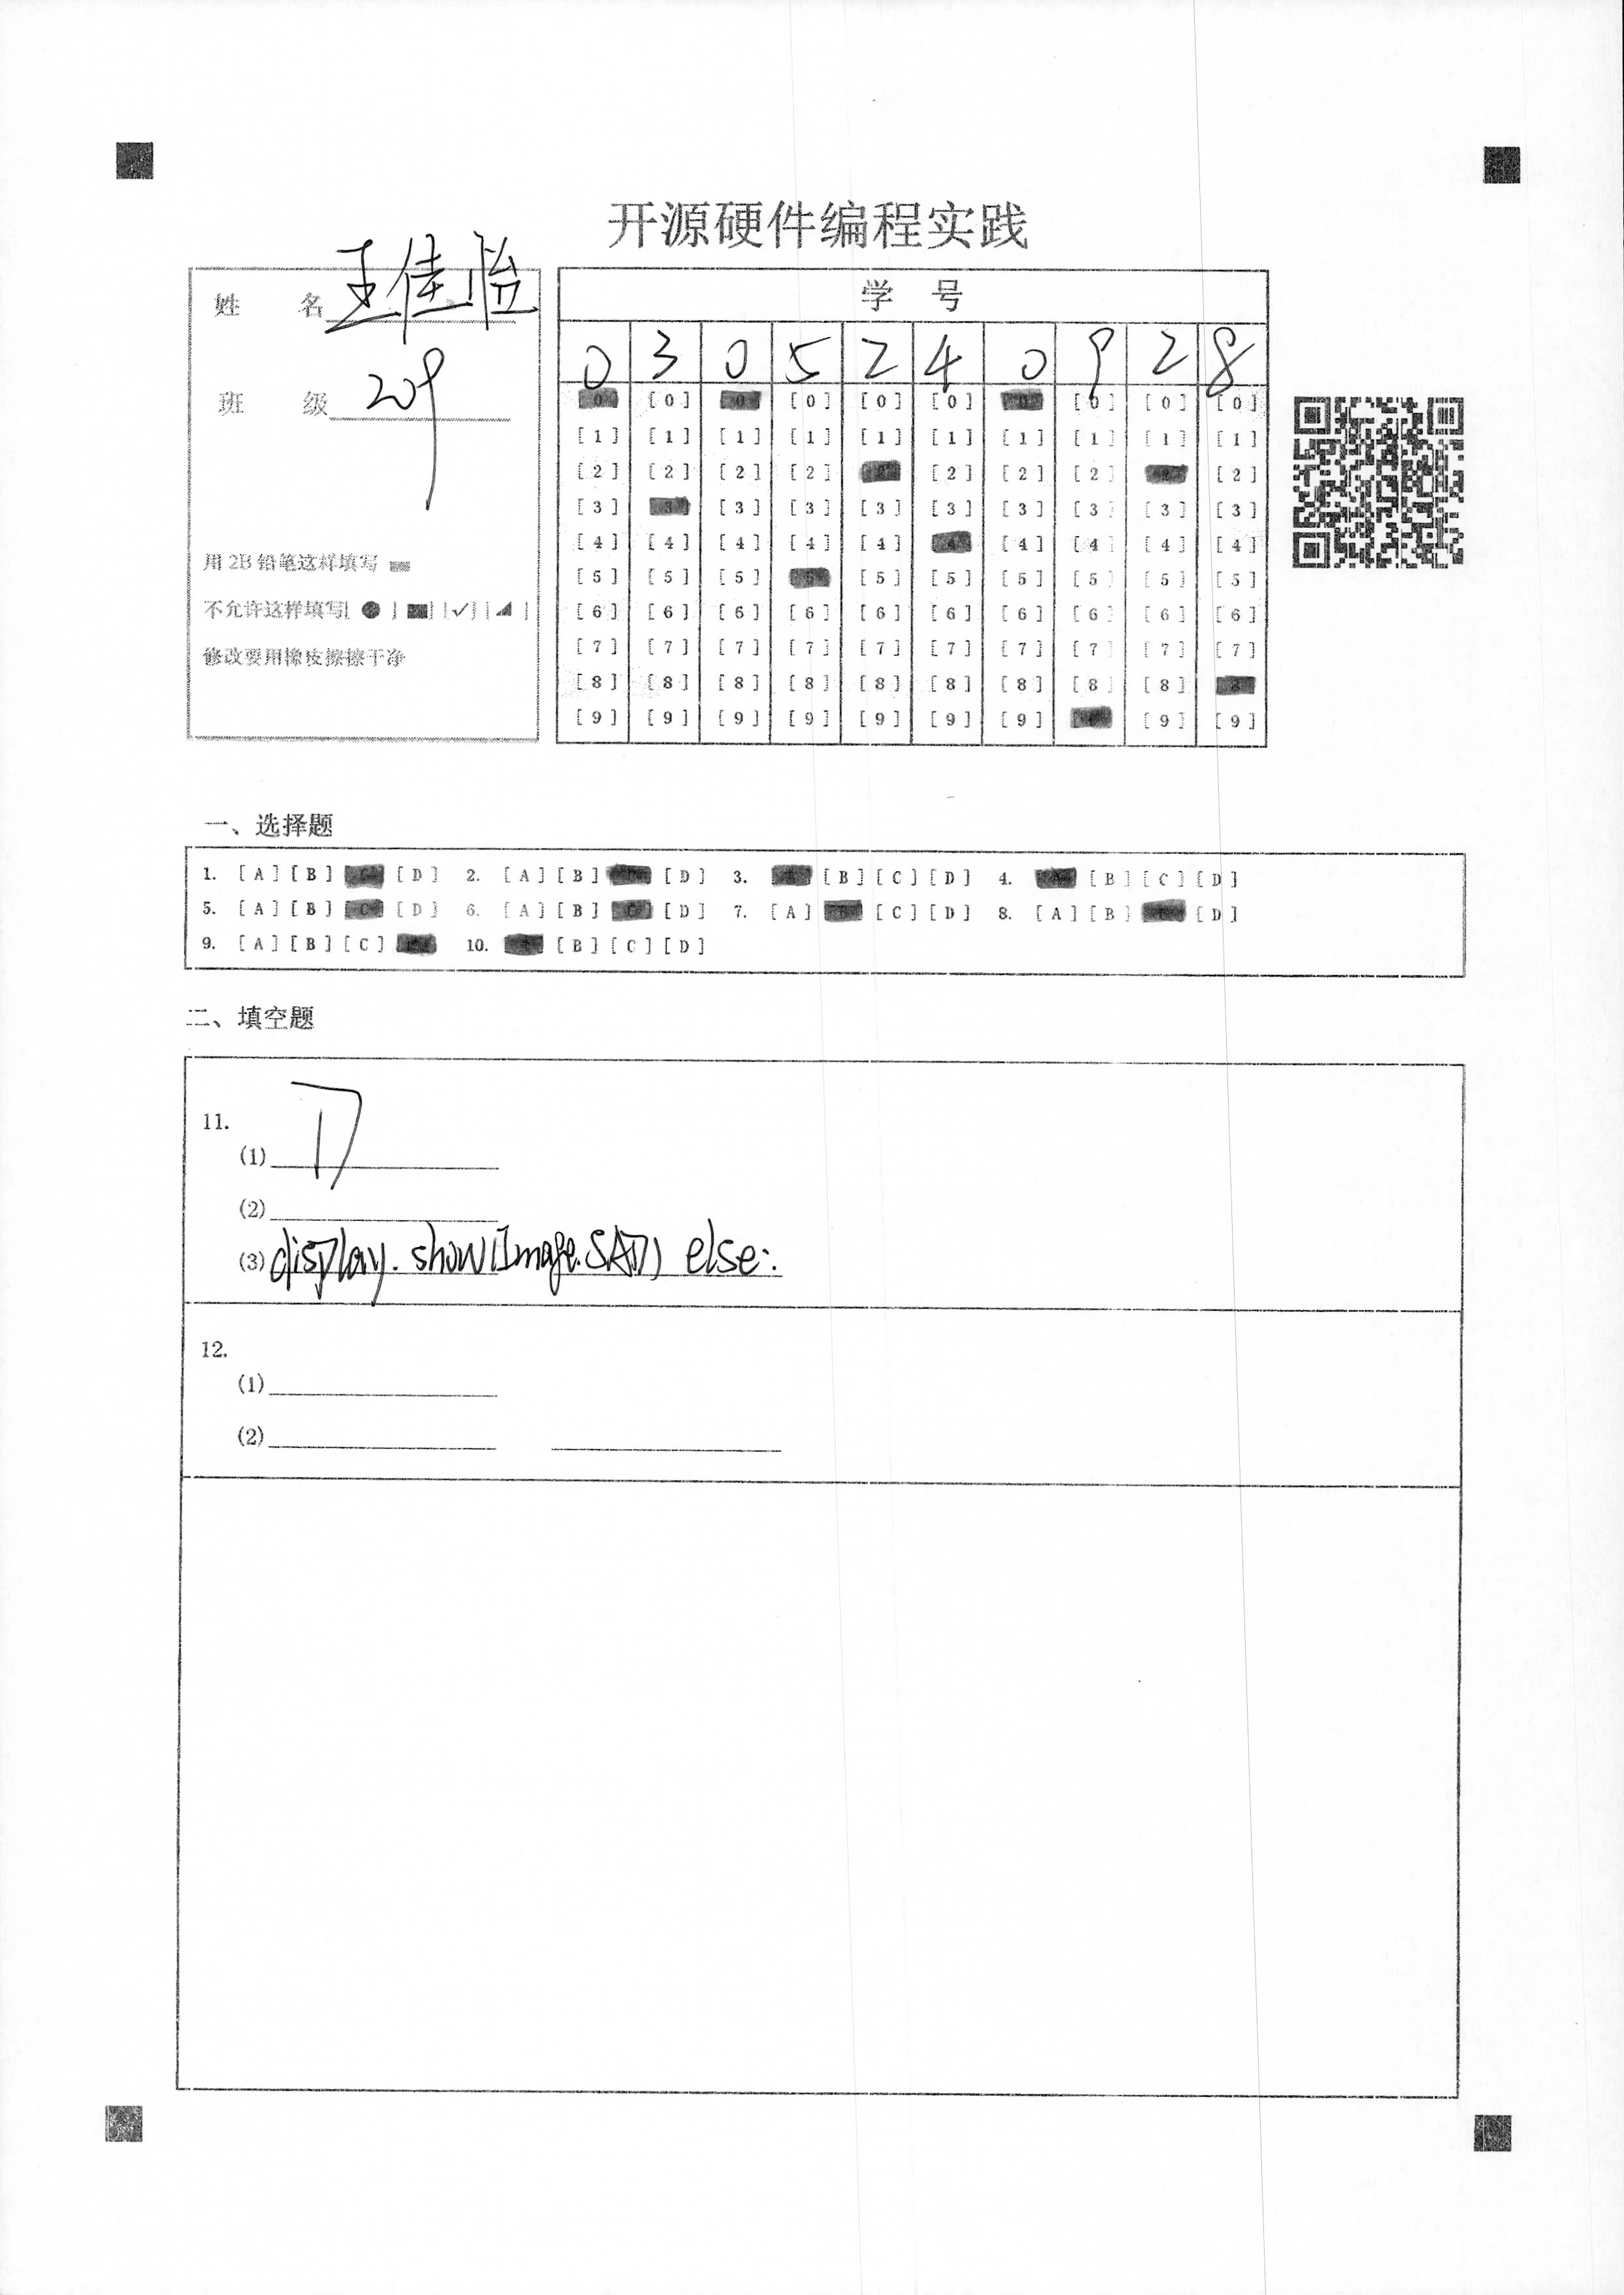 开源硬件编程实践
姓 名 王佳怡
班 级 209
用 2B 铅笔这样填写
不允许这样填写[ ● ] [■] [✓] [◢ ]
修改要用橡皮擦擦干净
学 号
0 3 0 5 2 4 0 9 2 8
[0] [0] [0] [0] [0] [0] [0] [0] [0] [0]
[1] [1] [1] [1] [1] [1] [1] [1] [1] [1]
[2] [2] [2] [2] [2] [2] [2] [2] [2] [2]
[3] [3] [3] [3] [3] [3] [3] [3] [3] [3]
[4] [4] [4] [4] [4] [4] [4] [4] [4] [4]
[5] [5] [5] [5] [5] [5] [5] [5] [5] [5]
[6] [6] [6] [6] [6] [6] [6] [6] [6] [6]
[7] [7] [7] [7] [7] [7] [7] [7] [7] [7]
[8] [8] [8] [8] [8] [8] [8] [8] [8] [8]
[9] [9] [9] [9] [9] [9] [9] [9] [9] [9]
一、选择题
1. [A] [B] [C] [D] 2. [A] [B] [C] [D] 3. [A] [B] [C] [D] 4. [A] [B] [C] [D]
5. [A] [B] [C] [D] 6. [A] [B] [C] [D] 7. [A] [B] [C] [D] 8. [A] [B] [C] [D]
9. [A] [B] [C] [D] 10. [A] [B] [C] [D]
二、填空题
11.
(1) D
(2)
(3) display.show(Image.SAD) else:
12.
(1)
(2)